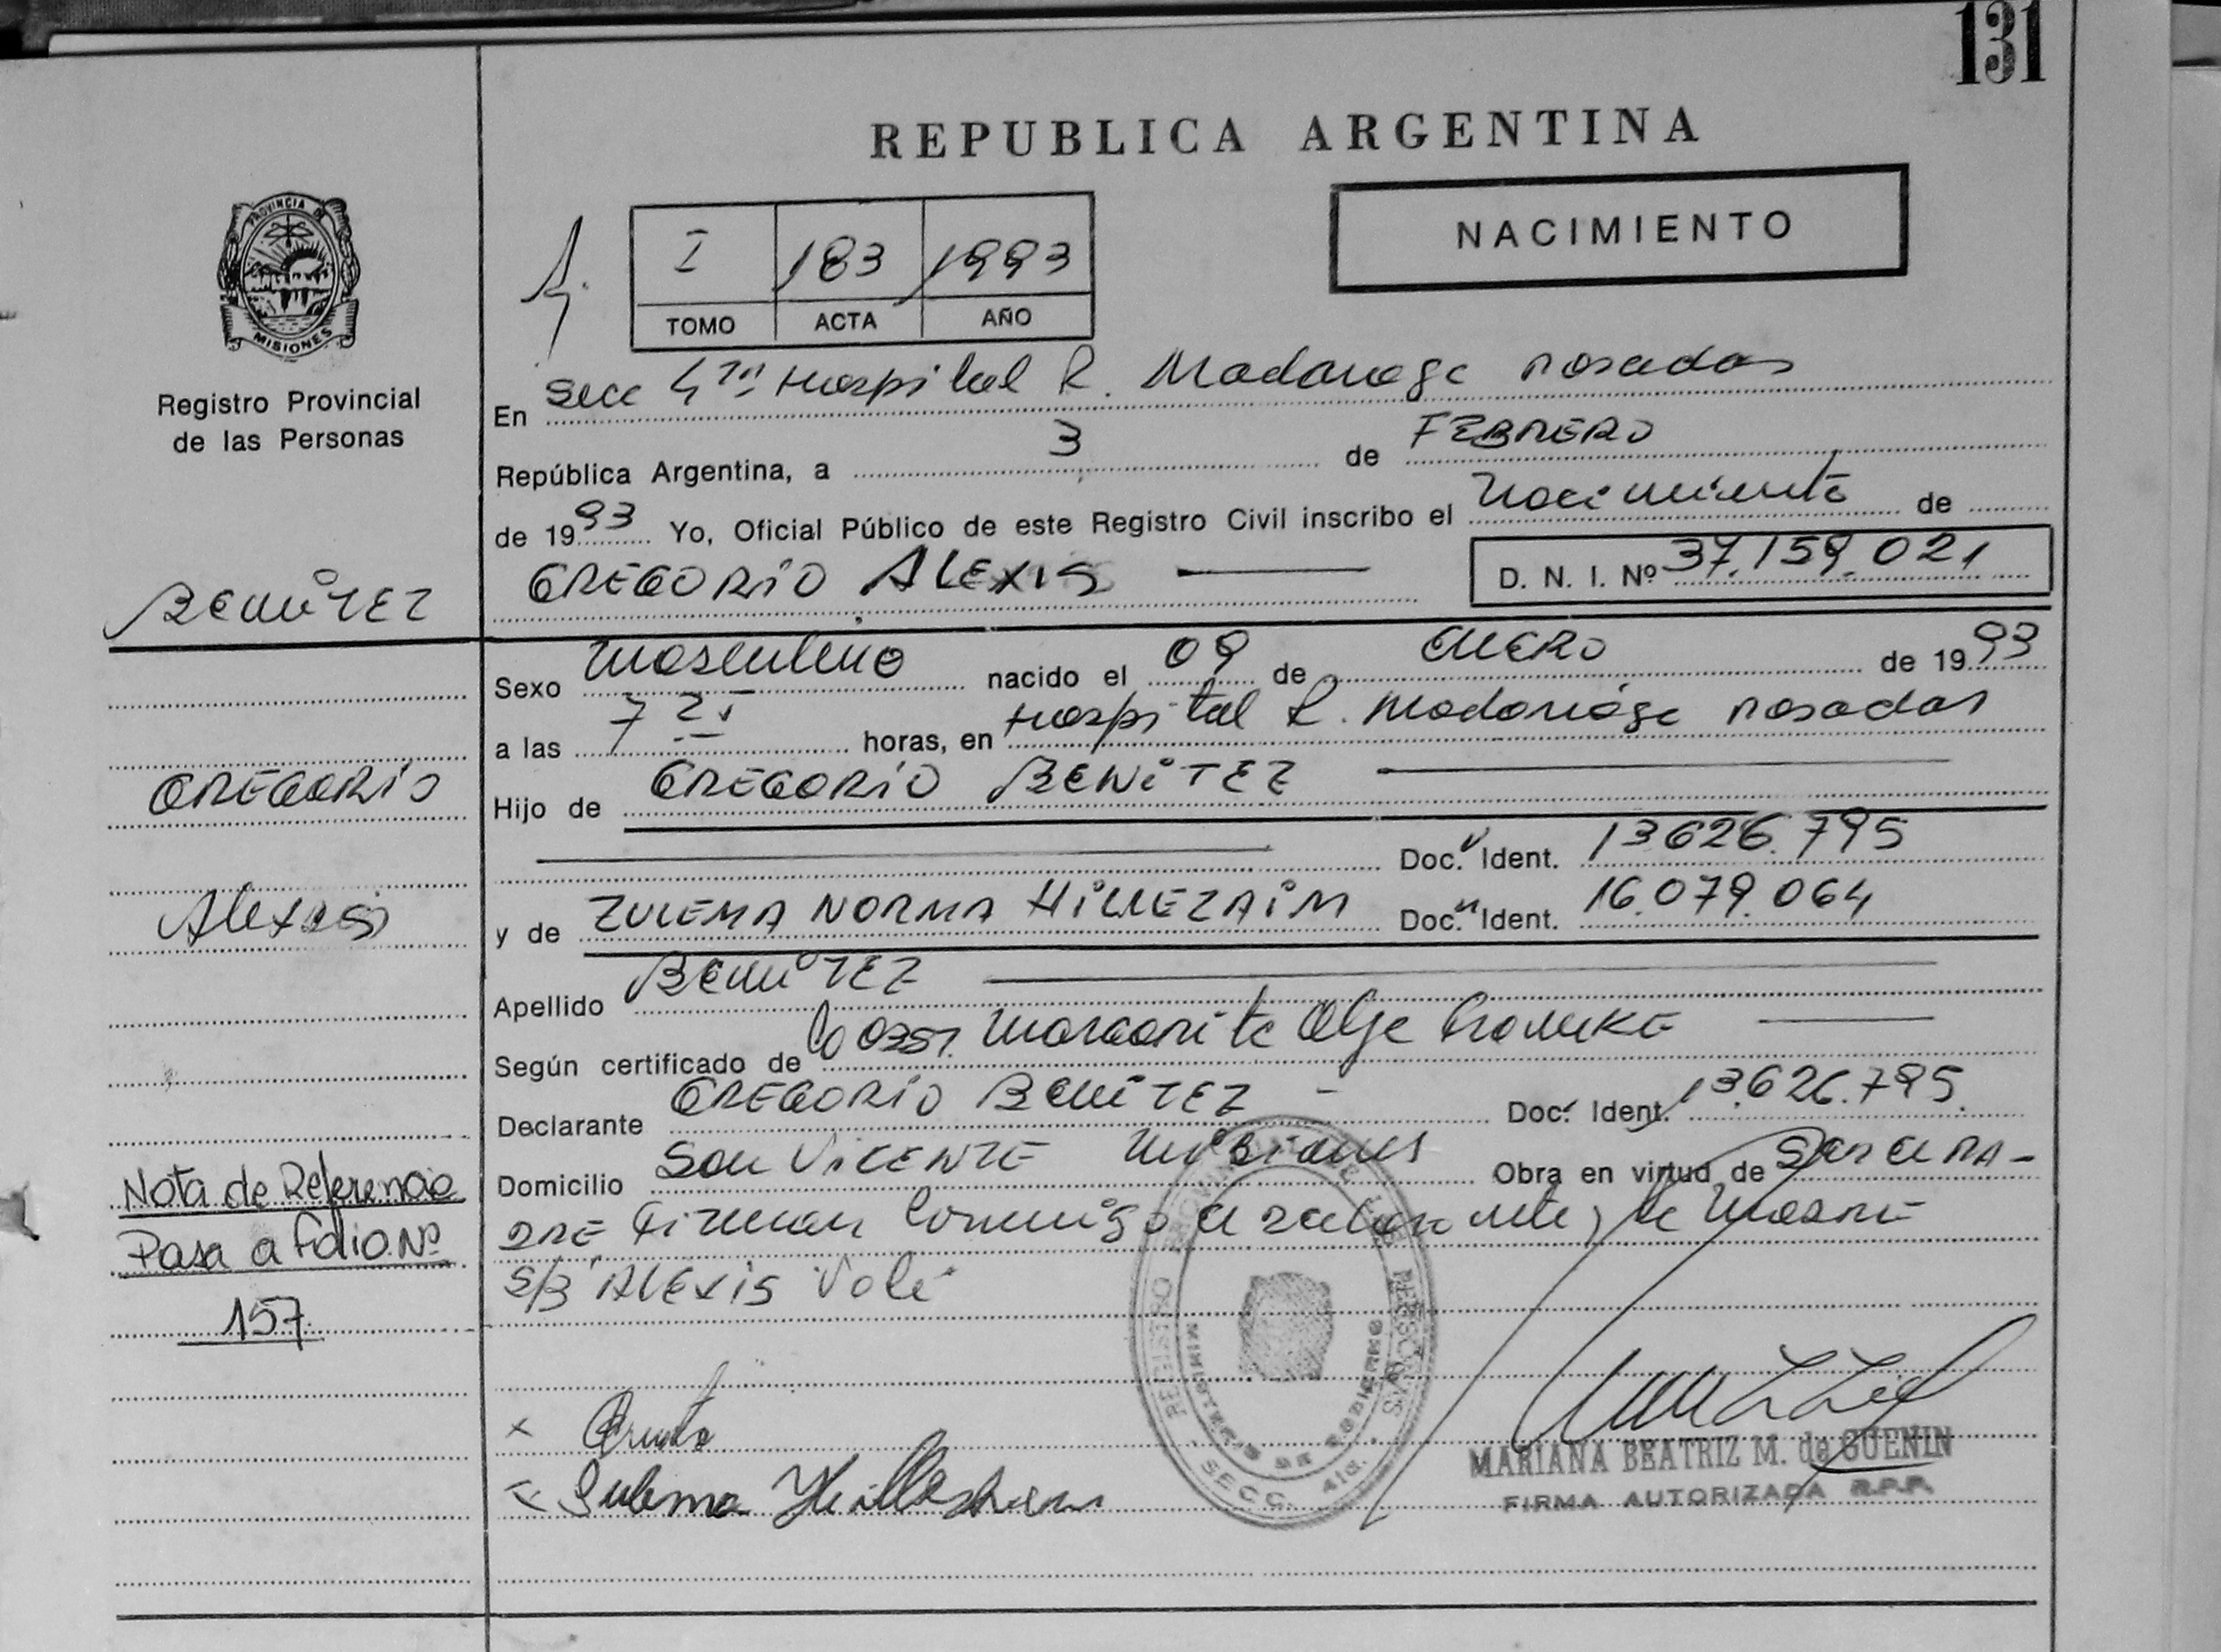 131
REPUBLICA ARGENTINA
PROVINCIA DE
MISIONES
Registro Provincial
de las Personas
I 183 1993
TOMO ACTA AÑO
NACIMIENTO
En Secc 4ta Hospital R. Madariaga Posadas
República Argentina, a 3 de FEBRERO
de 1993 Yo, Oficial Público de este Registro Civil inscribo el Nacimiento de
GREGORIO ALEXIS
D. N. I. Nº 37.159.021
BENITEZ
GREGORIO
Alexis
Sexo Masculino nacido el 09 de ENERO de 1993
a las 7 horas, en Hospital R. Madariaga Posadas
Hijo de GREGORIO BENITEZ
Doc. Ident. 13626.795
y de ZULEMA NORMA Doc. Ident. 16.079.064
Apellido BENITEZ
Según certificado de Margarita Olga
Declarante GREGORIO BENITEZ - Doc. Ident. 13.626.795.
Domicilio San VICENTE Misiones Obra en virtud de
Firman Conmigo y la Madre
S/B ALEXIS Vale
Nota de Referencia
Pasa a folio Nº
157
REGISTRO PROVINCIAL DE LAS PERSONAS
MINISTERIO DE GOBIERNO
SECC. 4ta.
MARIANA BEATRIZ M. de GUENIN
FIRMA AUTORIZADA R.P.P.